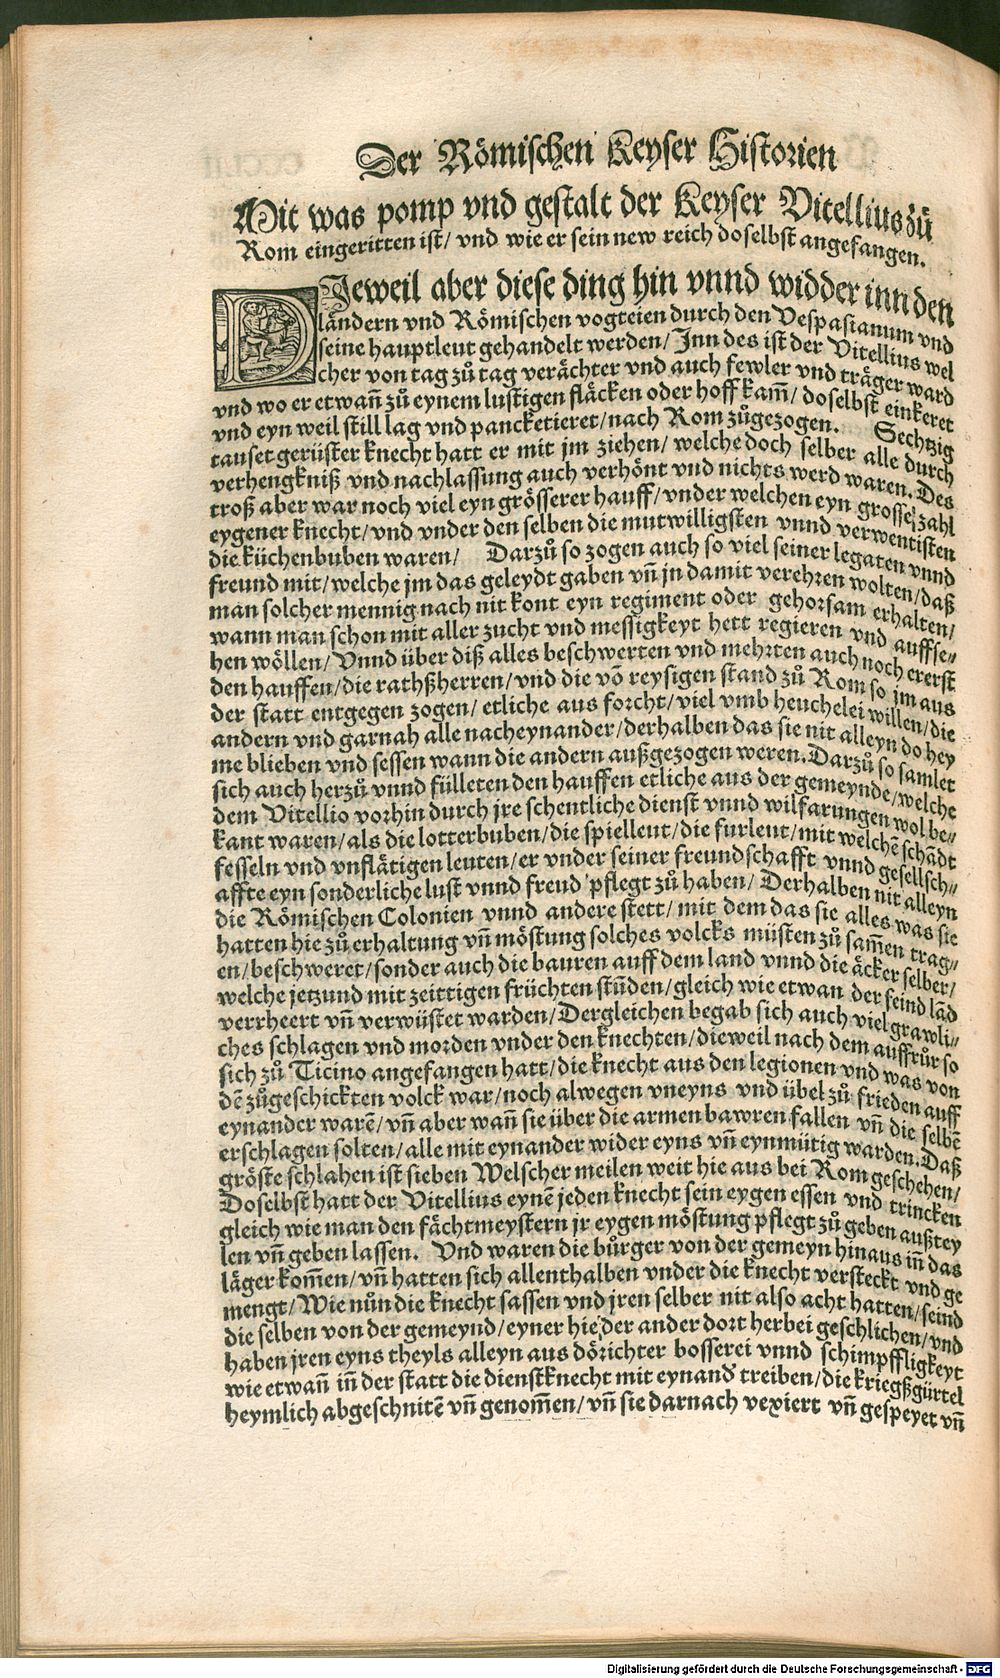 Der Römischen Keyser Historien
Mit was pomp vnd gestalt der Keyser Vitellius zů
Rom eingeritten ist/ vnd wie er sein new reich doselbst angefangen.
DJeweil aber diese ding hin vnnd widder inn den
ländern vnd Römischen vogteien durch den Vespasianum vnd
seine hauptleut gehandelt werden/ Jnn des ist der Vitellius wel
cher von tag zů tag verächter vnd auch fewler vnd träger ward
vnd wo er etwañ zů eynem lustigen fläcken oder hoff kam̃/ doselbst einkeret
vnd eyn weil still lag vnd pancketieret/ nach Rom zůgezogen. Sechtzig
tauset gerüster knecht hatt er mit jm ziehen/ welche doch selber alle durch
verhengkniß vnd nachlassung auch verhönt vnd nichts werd waren. Des
troß aber war noch viel eyn grösserer hauff/ vnder welchen eyn grosse zahl
eygener knecht/ vnd vnder den selben die mutwilligsten vnnd verwentisten
die küchenbuben waren/ Darzů so zogen auch so viel seiner legaten vnnd
freund mit/ welche jm das geleydt gaben vñ jn damit verehren wolten/ daß
man solcher mennig nach nit kont eyn regiment oder gehorsam erhalten/
wann man schon mit aller zucht vnd messigkeyt hett regieren vnd auffse⸗
hen wöllen/ Vnnd über diß alles beschwerten vnd mehrten auch noch ererst
den hauffen/ die rathßherren/ vnd die võ reysigen stand zů Rom so jm aus
der statt entgegen zogen/ etliche aus forcht/ viel vmb heuchelei willen/ die
andern vnd garnah alle nacheynander/ derhalben das sie nit alleyn do hey
me blieben vnd sessen wann die andern außgezogen weren. Darzů so samlet
sich auch herzů vnnd fülleten den hauffen etliche aus der gemeynde/ welche
dem Vitellio vorhin durch jre schentliche dienst vnnd wilfarungen wol be⸗
kant waren/ als die lotterbuben/ die spielleut/ die furleut/ mit welchẽ schãdt
fesseln vnd vnflätigen leuten/ er vnder seiner freundschafft vnnd gesellsch⸗
affte eyn sonderliche lust vnnd freud pflegt zů haben/ Derhalben nit alleyn
die Römischen Colonien vnnd andere stett/ mit dem das sie alles was sie
hatten hie zů erhaltung vñ möstung solches volcks müsten zů sam̃en trag⸗
en/ beschweret/ sonder auch die bauren auff dem land vnnd die äcker selber/
welche jetzund mit zeittigen früchten stůden/ gleich wie etwan der feind lãd
verrheert vñ verwüstet warden/ Dergleichen begab sich auch viel grawli⸗
ches schlagen vnd morden vnder den knechten/ dieweil nach dem auffrůr so
sich zů Ticino angefangen hatt/ die knecht aus den legionen vnd was von
dẽ zůgeschickten volck war/ noch alwegen vneyns vnd übel zů frieden auff
eynander warẽ/ vñ aber wañ sie über die armen bawren fallen vñ die selbẽ
erschlagen solten/ alle mit eynander wider eyns vñ eynmütig warden. Daß
gröste schlahen ist sieben Welscher meilen weit hie aus bei Rom geschehen/
Doselbst hatt der Vitellius eynẽ jeden knecht sein eygen essen vnd trincken
gleich wie man den fächtmeystern jr eygen möstung pflegt zů geben außtey
len vñ geben lassen. Vnd waren die bůrger von der gemeyn hinaus iñ das
läger kom̃en/ vñ hatten sich allenthalben vnder die knecht versteckt vnd ge
mengt/ Wie nůn die knecht sassen vnd jren selber nit also acht hatten/ seind
die selben von der gemeynd/ eyner hie der ander dort herbei geschlichen/ vnd
haben jren eyns theyls alleyn aus dörichter bosserei vnnd schimpffligkeyt
wie etwañ iñ der statt die dienstknecht mit eynand̕ treiben/ die kriegßgürtel
heymlich abgeschnitẽ vñ genom̃en/ vñ sie darnach vexiert vñ gespeyet vñ
Digitalisierung gefördert durch die Deutsche Forschungsgemeinschaft - DFG